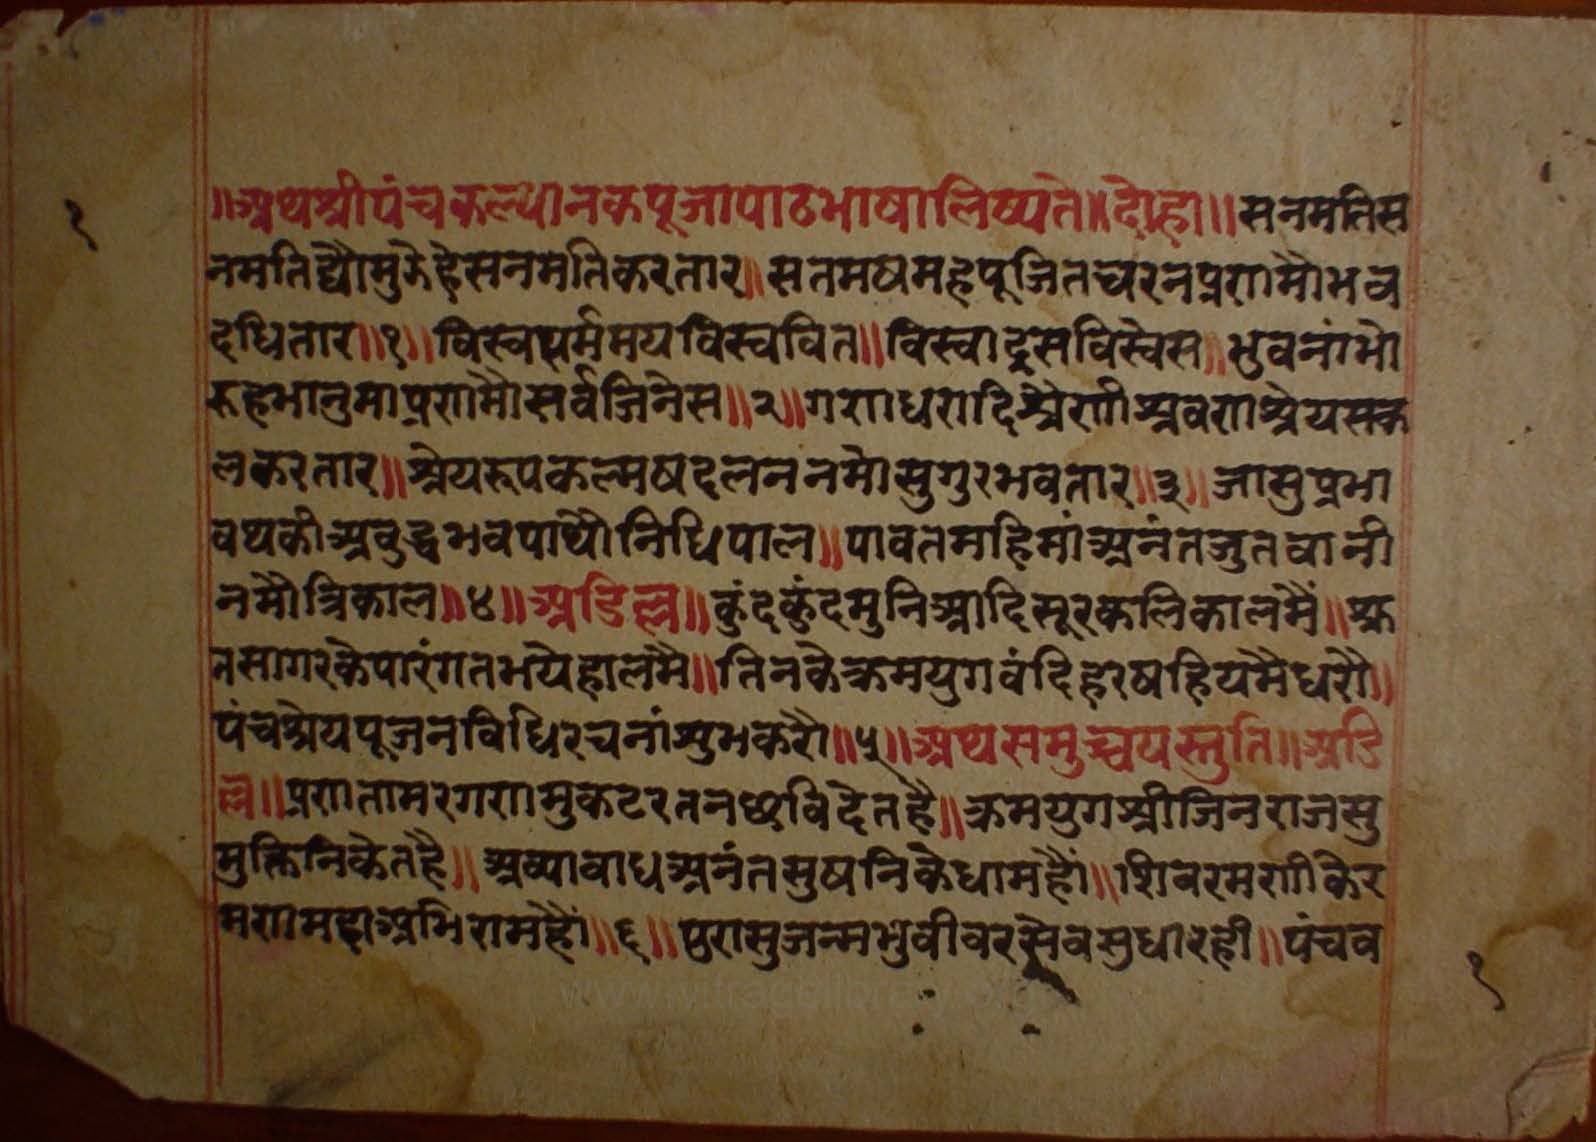 ॥अथश्रीपंचकल्यानकपूजापाठभाषालिष्यते॥दोहा॥सनमतिस
नमतिद्यौमुझेहेसनमतिकरतार॥सतमषमहपूजितचरनप्रणमौभव
दधितार॥१॥विस्वधर्ममयविस्ववित॥विस्वादृसविस्वेस॥भुवनांभो
रुहभानुमाप्रणमौसर्वजिनेस॥२॥गणधरादिश्रेणीश्रवणश्रेयसक
लकरतार॥श्रेयरुपकल्मषदलननमोसुगुरभवतार॥३॥जासुप्रभा
वथकीअबुद्धभवपाथौनिधिपाल॥पावतमहिमांअनंतजुतवानी
नमौत्रिकाल॥४॥अडिल्ल॥कुंदकुंदमुनिआदिसूरकलिकालमैं॥श्रु
तसागरकेपारंगतभयेहालमै॥तिनकेक्रमयुगवंदिहरषहियमैधरौ॥
पंचश्रेयपूजनविधिरचनांसुभकरौ॥५॥अथसमुच्चयस्तुति॥अडि
ल्ल॥प्रणतामरगणमुकटरतनछविदेतहै॥क्रमयुगश्रीजिनराजसु
मुक्तिनिकेतहै॥अव्याबाधअनंतसुषनिकेधामहैं॥शिवरमणीकेर
मणमहाअभिरामहैं॥६॥पुरासुजन्मभुवीवरसैवसुधारही॥पंचव
१
१